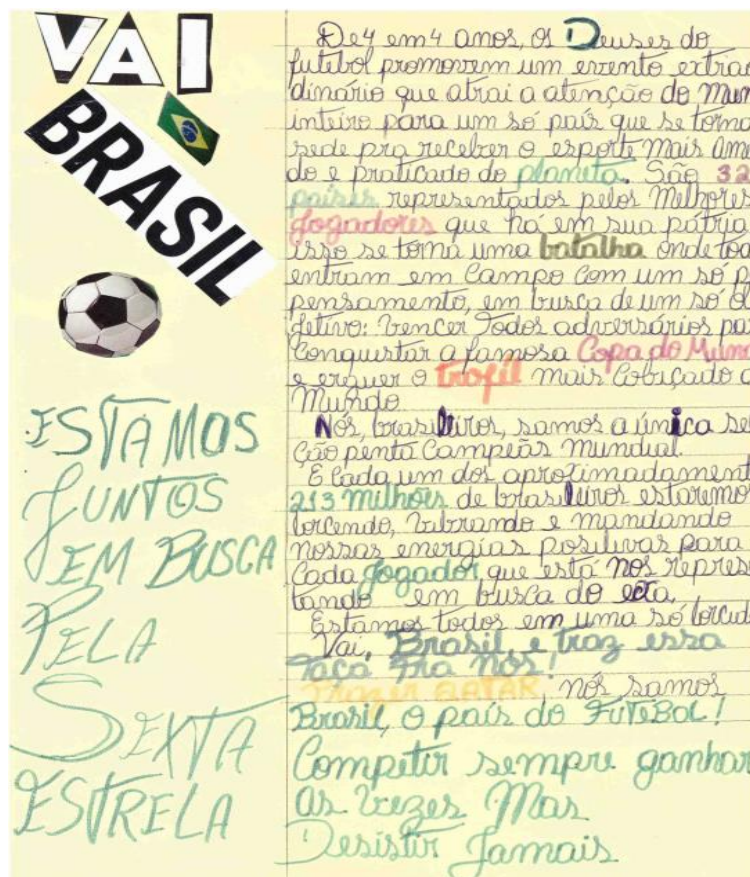 VAI
BRASIL
ESTAMOS
JUNTOS
EM BUSCA
PELA
SEXTA
ESTRELA
De 4 em 4 anos, os Deuses do
futebol promovem um evento extrao
dinário que atrai a atenção do Mun
inteiro para um só país que se torna
sede pra receber o esporte Mais ama
do e praticado do planeta. São 32
países representados pelos Melhores
Jogadores que há em sua pátria
isso se torna uma batalha onde tod
entram em Campo Com um só p
pensamento, em busca de um só ob
jetivo: Vencer Todos adversários pa
Conquistar a famosa Copa do Mund
e erguer o troféu mais Cobiçado d
Mundo
Nós, brasileiros, samos a única se
ção penta Campeãs Mundial.
E Cada um dos aproximadament
213 milhões de brasileiros estaremo
torcendo, Vibrando e mandando
nossas energias positivas para
Cada Jogador que está nos represe
tando em busca do
Estamos todos em uma só torcid
Vai, Brasil, e traz essa
Taça Pra Nós!
QATAR, nós samos
Brasil, o país do FUTEBOL!
Competir sempre ganhar
as Vezes Mas
Desistir Jamais